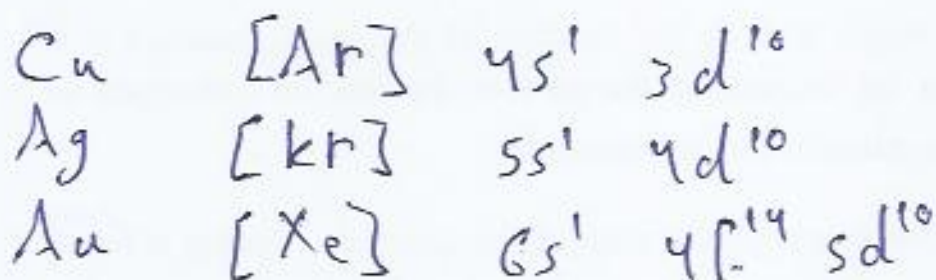 Cu [Ar] 4s¹ 3d¹⁰
Ag [kr] 5s¹ 4d¹⁰
Au [Xe] 6s¹ 4f¹⁴ 5d¹⁰